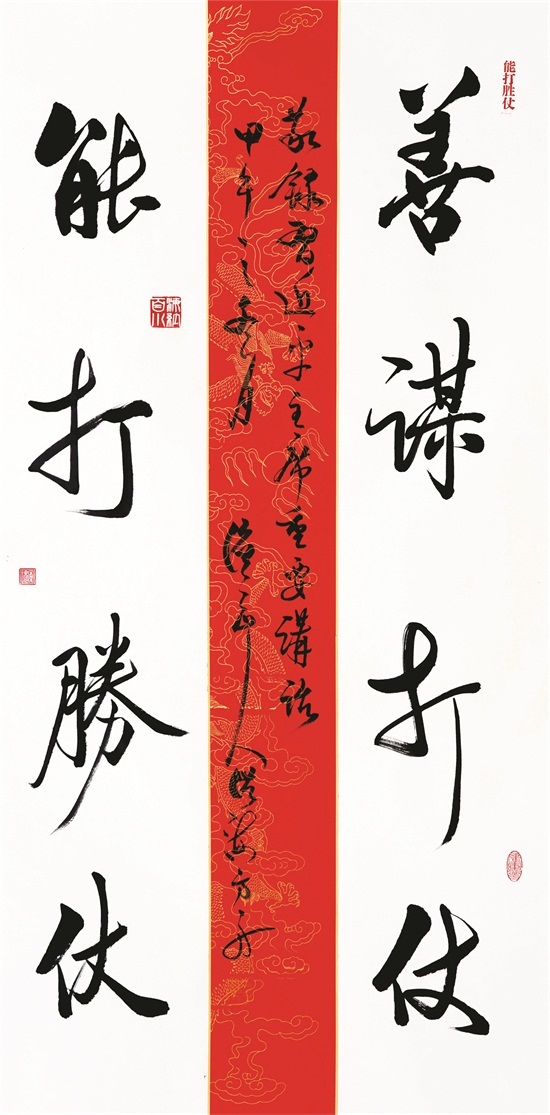 能打胜仗
善谋打仗
敬録習近平主席重要講話
甲午之冬月
人
能打勝仗